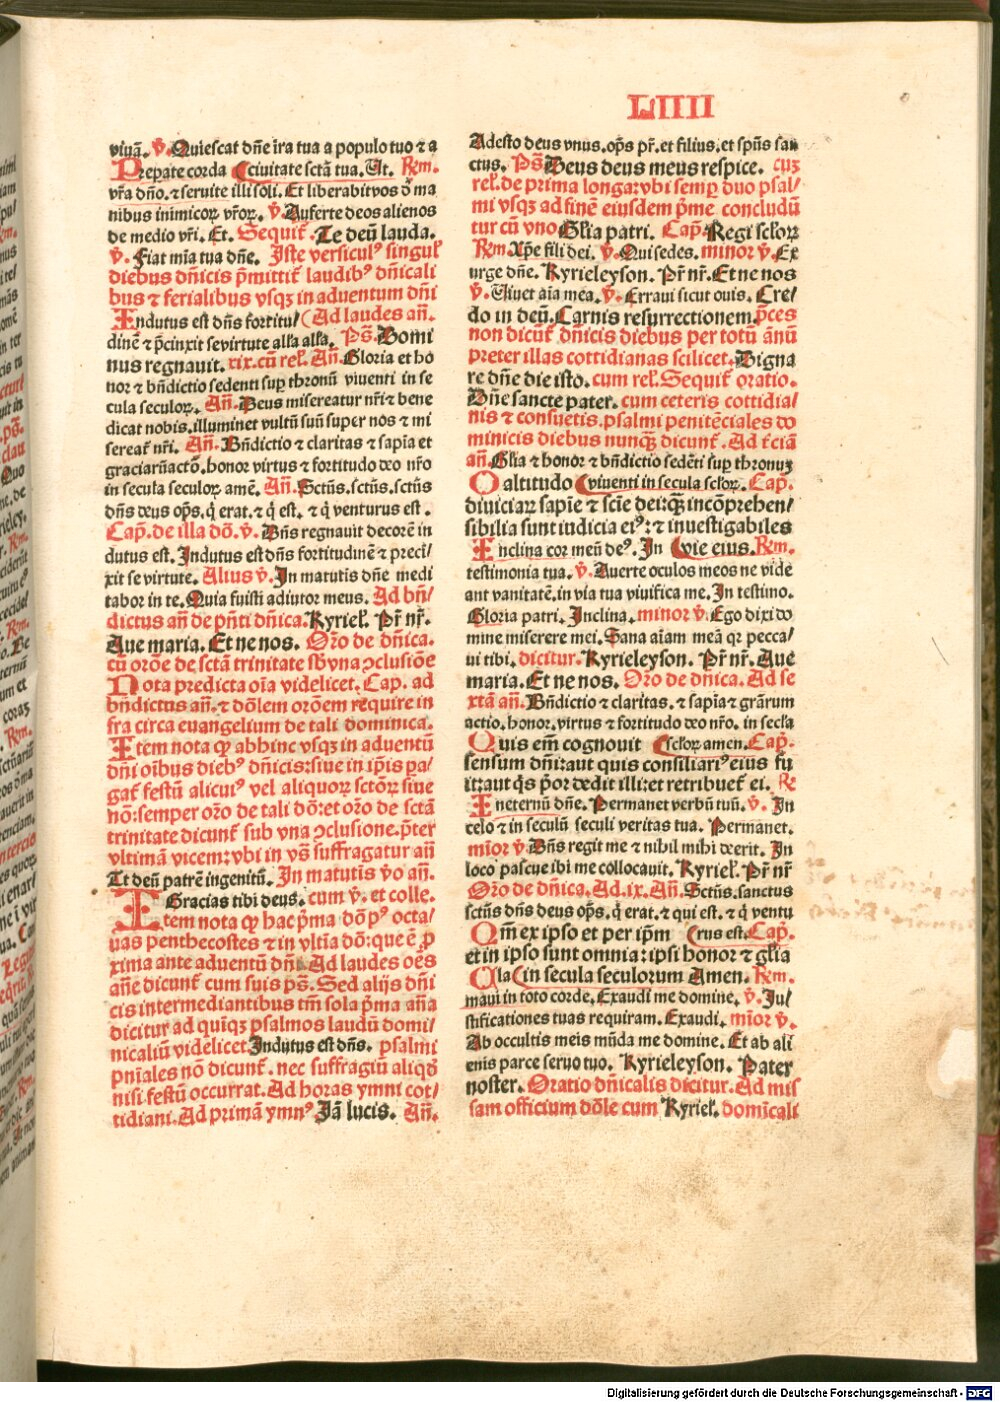 LIIII
viuā. v̄. Quiescat dn̄e ira tua a populo tuo ⁊ a
Prepate corda (ciuitate sctā tua. Ut. Rm̄.
vr̄a dn̄o. ⁊ seruite illi soli. Et liberabit vos d̄ ma
nibus inimicoꝝ vr̄oꝝ. v̄. Auferte deos alienos
de medio vr̄i. Et. Sequit̄. Te deū lauda.
v̄. Fiat mīa tua dn̄e. Iste versicul⁹ singul̓
diebus dn̄icis p̄mittit̄ laudib⁹ dn̄icali
bus ⁊ ferialibus vsqꝫ in aduentum dn̄i
Indutus est dn̄s fortitu/ (Ad laudes an̄.
dinē ⁊ p̄cinxit se virtute all̓a all̓a. Ps̄. Domi
nus regnauit. xix. cū rel̓. An̄. Gloria et ho
nor ⁊ bn̄dictio sedenti sup̱ thronū viuenti in se
cula seculoꝝ. An̄. Deus misereatur nr̄i ⁊ bene
dicat nobis. illuminet vultū suū super nos ⁊ mi
sereat̄ nr̄i. An̄. Bn̄dictio ⁊ claritas ⁊ sapīa et
graciaꝝ actō. honor virtus ⁊ fortitudo deo nr̄o
in secula seculoꝝ amē. An̄. Sctūs. sctūs. sctūs
dn̄s deus op̄s. q̄ erat. ⁊ q̄ est. ⁊ q̄ venturus est.
Cap̄. de illa dō. v̄. Dn̄s regnauit decorē in
dutus est. Indutus est dn̄s fortitudinē ⁊ preci/
xit se virtute. Alius v̄. In matutis dn̄e medi
tabor in te. Quia fuisti adiutor meus. Ad bn̄/
dictus an̄ de pn̄ti dn̄ica. Kyriel̓. Pr̄ nr̄.
Aue maria. Et ne nos. Or̄o de dn̄ica.
cū orōe de sctā trinitate sb̄ vna ꝯclusiōe
Nota predicta oīa videlicet. Cap. ad
bn̄dictus an̄. ⁊ dōlem orōem require in
fra circa euangelium de tali dominica.
Item nota qꝫ abhinc vsqꝫ in aduentū
dn̄i oībus dieb⁹ dn̄icis: siue in ip̄is pa/
gat̄ festū alicui⁹ vel aliquoꝝ sctōꝝ siue
nō: semper or̄o de tali dō: et or̄o de sctā
trinitate dicunt̄ sub vna ꝯclusione. p̄ter
vltimā vicem: vbi in vs̄ suffragatur an̄
Te deū patrē ingenitū. In matutis v̄o an̄.
Gracias tibi deus. cum v̄. et colle.
Item nota qꝫ hac p̄ma dō p⁹ octa/
uas penthecostes ⁊ in vltīa dō: que ē ꝓ
xima ante aduentū dn̄i. Ad laudes oēs
an̄e dicunt̄ cum suis ps̄. Sed alijs dn̄i
cis intermediantibus tm̄ sola p̄ma an̄a
dicitur ad quiqꝫ psalmos laudū domi/
nicaliū videlicet. Indutus est dn̄s. psalmi
pn̄iales nō dicunt̄. nec suffragiū aliqd̄
nisi festū occurrat. Ad horas ymni cot/
tidiani. Ad primā ymn⁹ Iā lucis. An̄.
Adesto deus vnus. op̄s pr̄. et filius. et spūs san
ctus. Ps̄. Deus deus meus respice. cuꝫ
rel̓. de prima longa: vbi semp̱ duo psal/
mi vsqꝫ ad finē eiusdem p̄me concludū
tur cū vno Gl̓ia patri. Cap̄. Regi scl̓oꝝ
Rm̄. Xp̄e fili dei. v̄. Qui sedes. minor v̄. Ex
urge dn̄e. Kyrieleyson. Pr̄ nr̄. Et ne nos
v̄. Viuet aīa mea. v̄. Erraui sicut ouis. Cre/
do in deū. Carnis resurrectionem. p̄ces
non dicūt̄ dn̄icis diebus per totū ānū
preter illas cottidianas scilicet. Digna
re dn̄e die isto. cum rel̓. Sequit̄ oratio.
Dn̄e sancte pater. cum ceteris cottidia/
nis ⁊ consuetis. psalmi penitēciales do
minicis diebus nunqꝫ dicunt̄. Ad t̄ciā
an̄. Gl̓ia ⁊ honor ⁊ bn̄dictio sedēti sup̱ thronuꝫ
O altitudo (viuenti in secula scl̓oꝝ. Cap̄.
diuiciaꝝ sapīe ⁊ scīe dei: qꝫ incōprehen/
sibilia sunt iudicia ei⁹: ⁊ inuestigabiles
Inclina cor meū de⁹. In (vie eius. Rm̄.
testimonia tua. v̄. Auerte oculos meos ne vide
ant vanitatē. in via tua viuifica me. In testimo.
Gloria patri. Inclina. minor v̄. Ego dixi do
mine miserere mei. Sana aīam meā qꝛ pecca/
ui tibi. dicitur. Kyrieleyson. Pr̄ nr̄. Aue
maria. Et ne nos. Or̄o de dn̄ica. Ad se
xtā an̄. Bn̄dictio ⁊ claritas. ⁊ sapīa ⁊ grārum
actio. honor. virtus ⁊ fortitudo deo nr̄o. in secl̓a
Quis em̄ cognouit (scl̓oꝝ amen. Cap̄.
sensum dn̄i: aut quis consiliari⁹ eius fu
it: aut qs̄ p̄or dedit illi: et retribuet̄ ei. R̄
In eternū dn̄e. Permanet verbū tuū. v̄. In
celo ⁊ in seculū seculi veritas tua. Permanet.
mīor v̄. Dn̄s regit me ⁊ nihil mihi deerit. In
loco pascue ibi me collocauit. Kyriel̓. Pr̄ nr̄
Or̄o de dn̄ica. Ad. ix. An̄. Sctūs. sanctus
sctūs dn̄s deus op̄s. q̄ erat. ⁊ qui est. ⁊ q̄ ventu
Qm̄ ex ipso et per ip̄m (rus est. Cap̄.
et in ipso sunt omnia: ipsi honor ⁊ gl̓ia
Cla (in secula seculorum Amen. Rm̄.
maui in toto corde. Exaudi me domine. v̄. Ju/
stificationes tuas requiram. Exaudi. mīor v̄.
Ab occultis meis mūda me domine. Et ab ali
enis parce seruo tuo. Kyrieleyson. Pater
noster. Oratio dn̄icalis dicitur. Ad mis
sam officium dōle cum Kyriel̓. domīcali
Digitalisierung gefördert durch die Deutsche Forschungsgemeinschaft - DFG